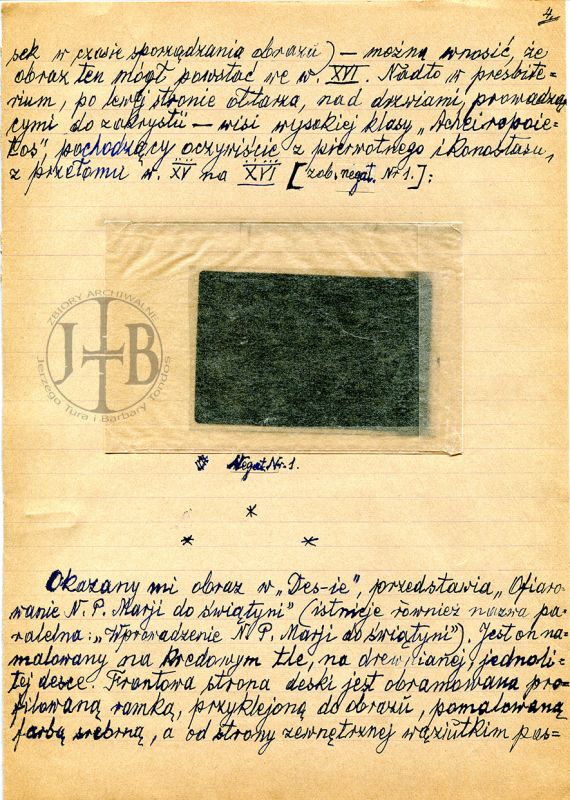 4.
sek w czasie sporządzania obrazu) — można wnosić, że
obraz ten mógł powstać we w. XVI. Nadto w presbite=
rium, po lewej stronie ołtarza, nad drzwiami, prowadzą=
cymi do zakrystii — wisi wysokiej klasy „Acheiropoie=
tos", pochodzący oczywiście z pierwotnego ikonostasu,
z przełomu w. XV na XVI [zob. negat. Nr 1.]:
ZBIORY ARCHIWALNE
J B
Jerzego Tura i Barbary Tondos
Negat. Nr. 1.
Okazany mi obraz w „Des-ie", przedstawia „Ofiaro=
wanie N. P. Marji do świątyni" (istnieje również nazwa pa=
ralelna: „Wprowadzenie N. P. Marji do świątyni"). Jest on na=
malowany na kredowym tle, na drewnianej, jednoli=
tej desce. Frontowa strona deski jest obramowana pro=
filowaną ramką, przyklejoną do obrazu, pomalowaną
farbą srebrną, a od strony zewnętrznej wąziutkim pas=